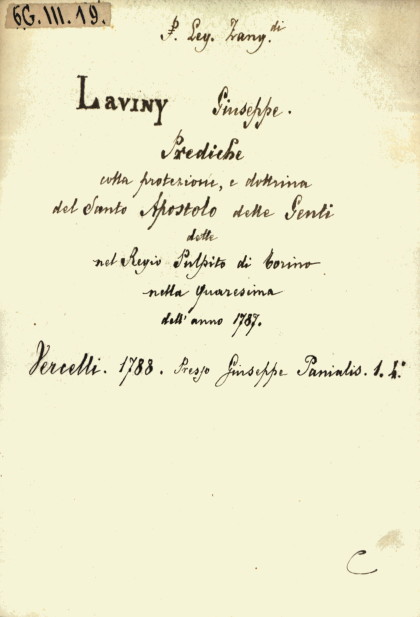 6G.III.19.
P. Leg. Zang.di
LAVINY Giuseppe.
Prediche
colla protezione, e dottrina
del Santo Apostolo delle Genti
dette
nel Regio Pulpito di Torino
nella Quaresima
dell'anno 1787.
Vercelli. 1788. Presso Giuseppe Panialis. 1. 4.°
C